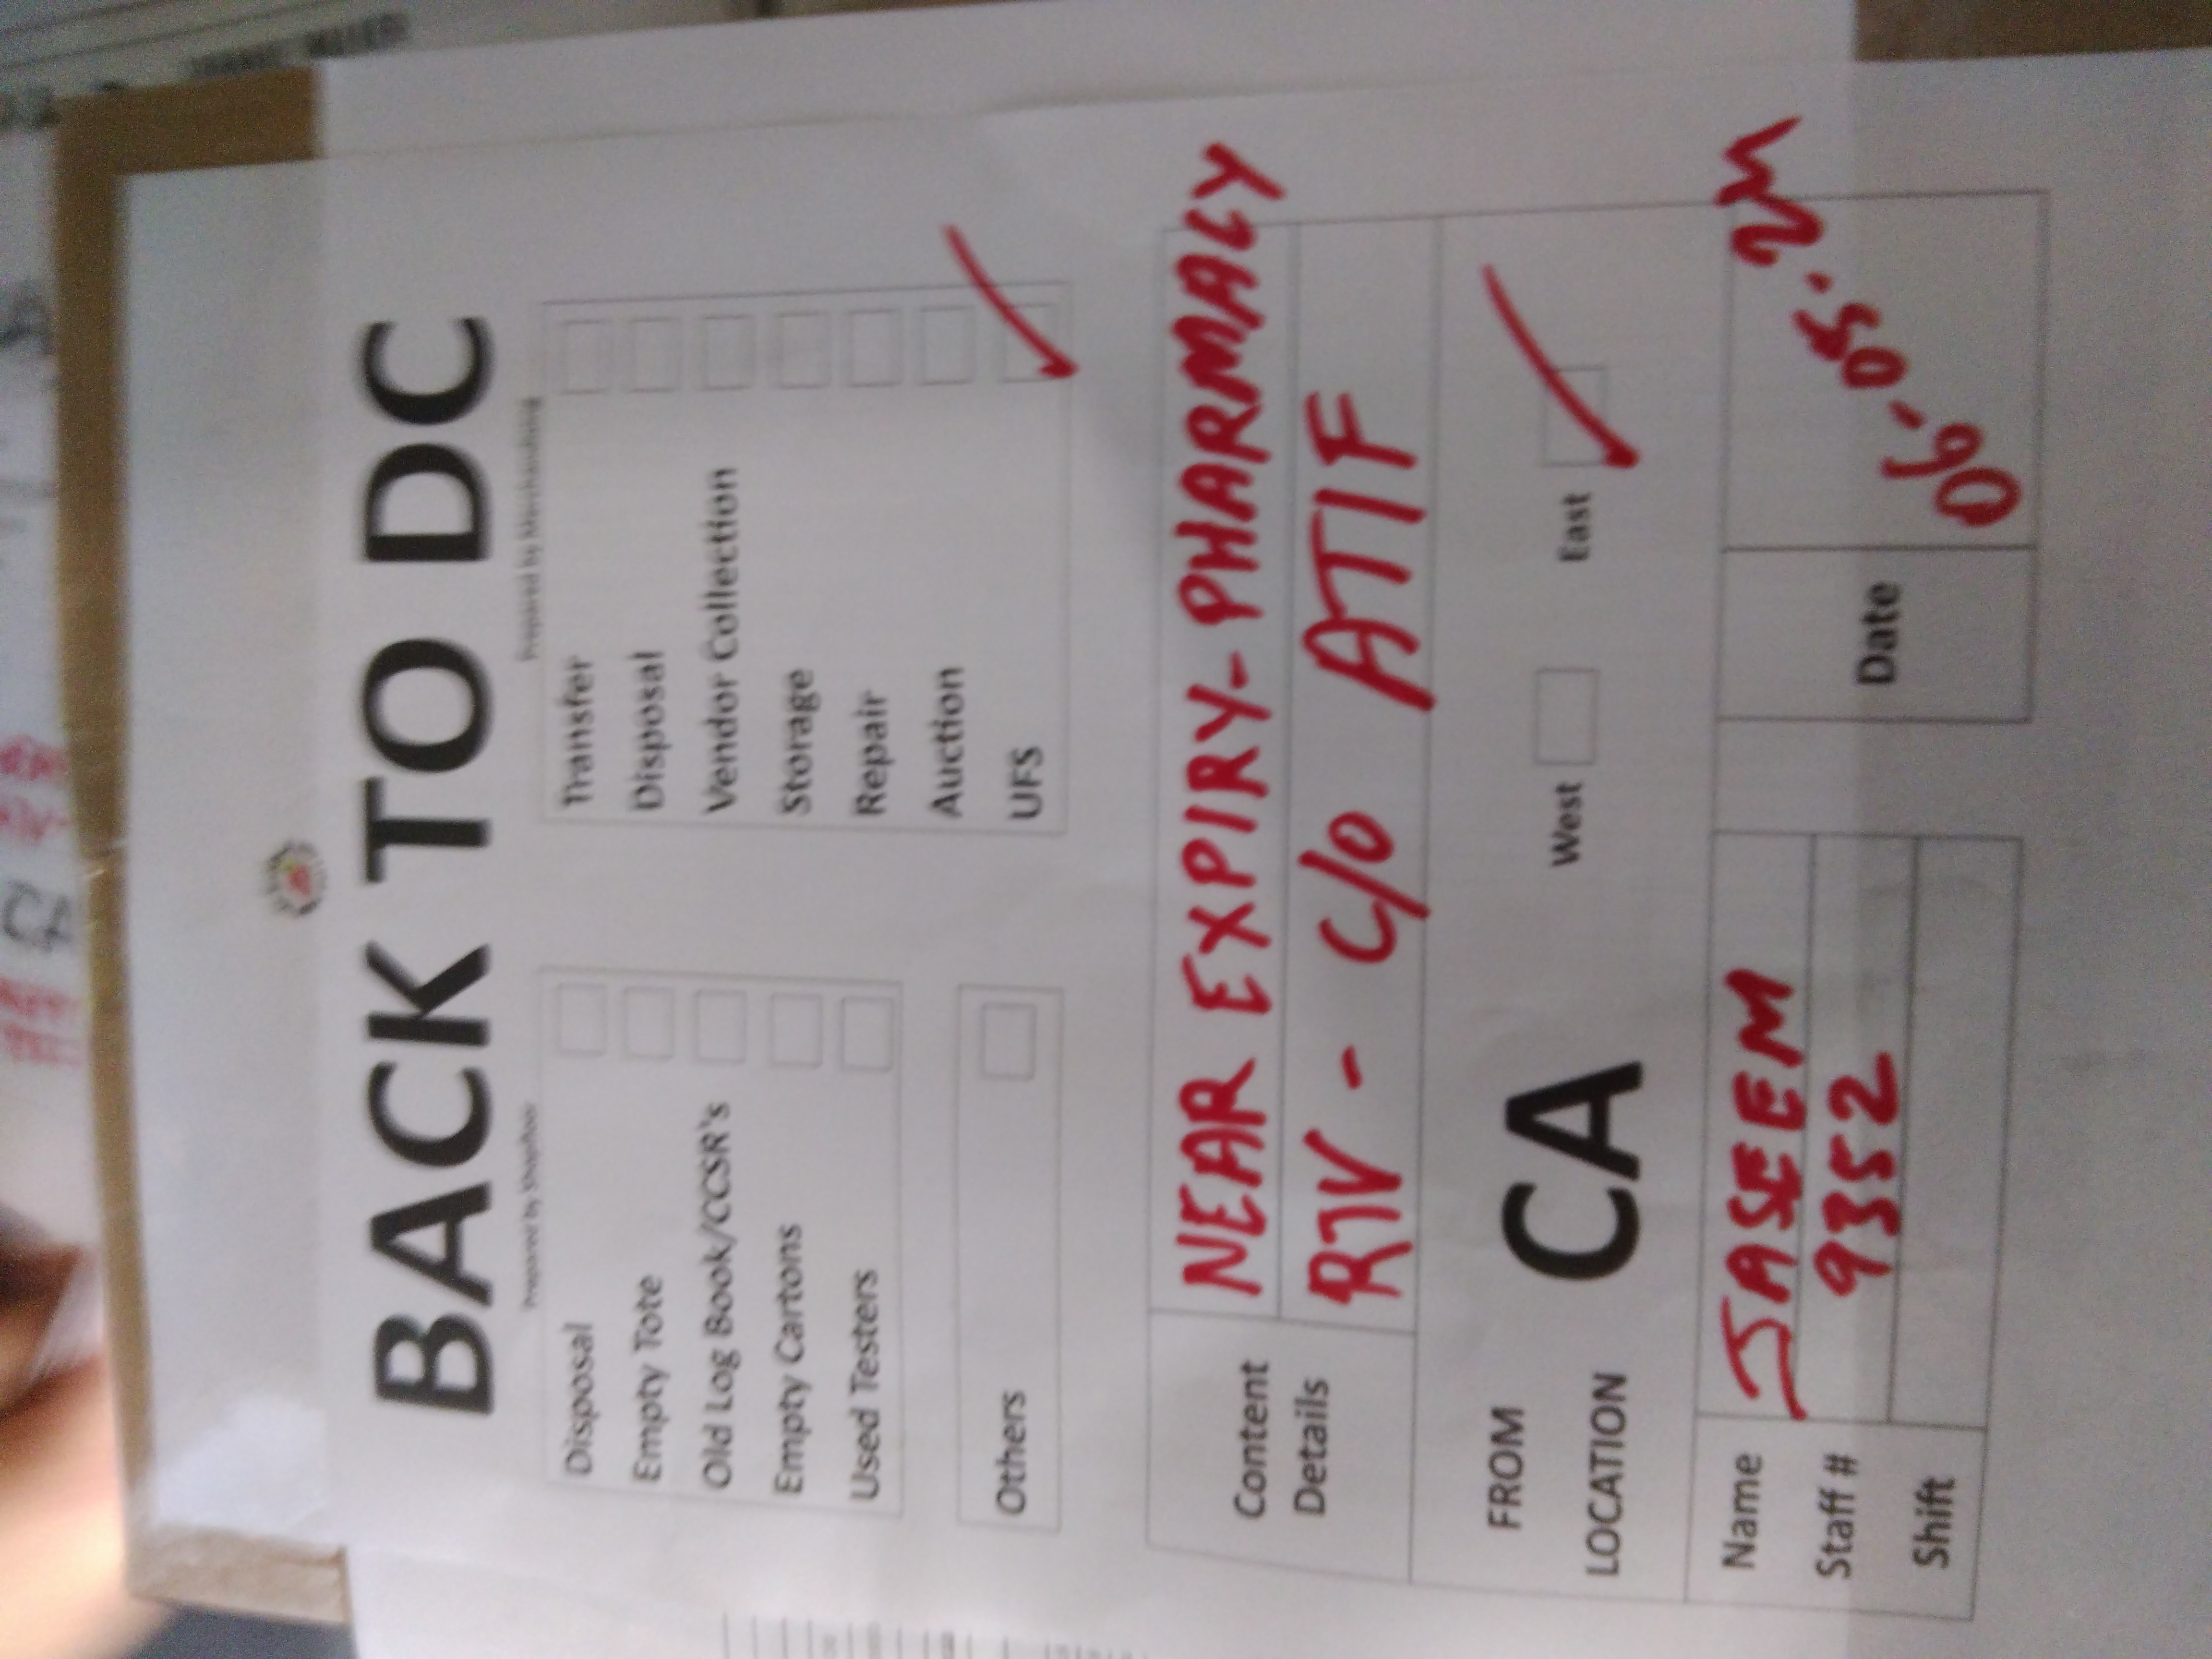 BACK TO DC
Prepared by Shopfloor
Disposal
Empty Tote
Old Log Book/CCSR's
Empty Cartons
Used Testers
Others
Prepared by Merchandising
Transfer
Disposal
Vendor Collection
Storage
Repair
Auction
UFS
Content Details
NEAR EXPIRY-PHARMACY
RTV - C/O ATIF
FROM LOCATION
CA
West
East
Name JASEEM
Staff # 9352
Shift
Date 06-05-